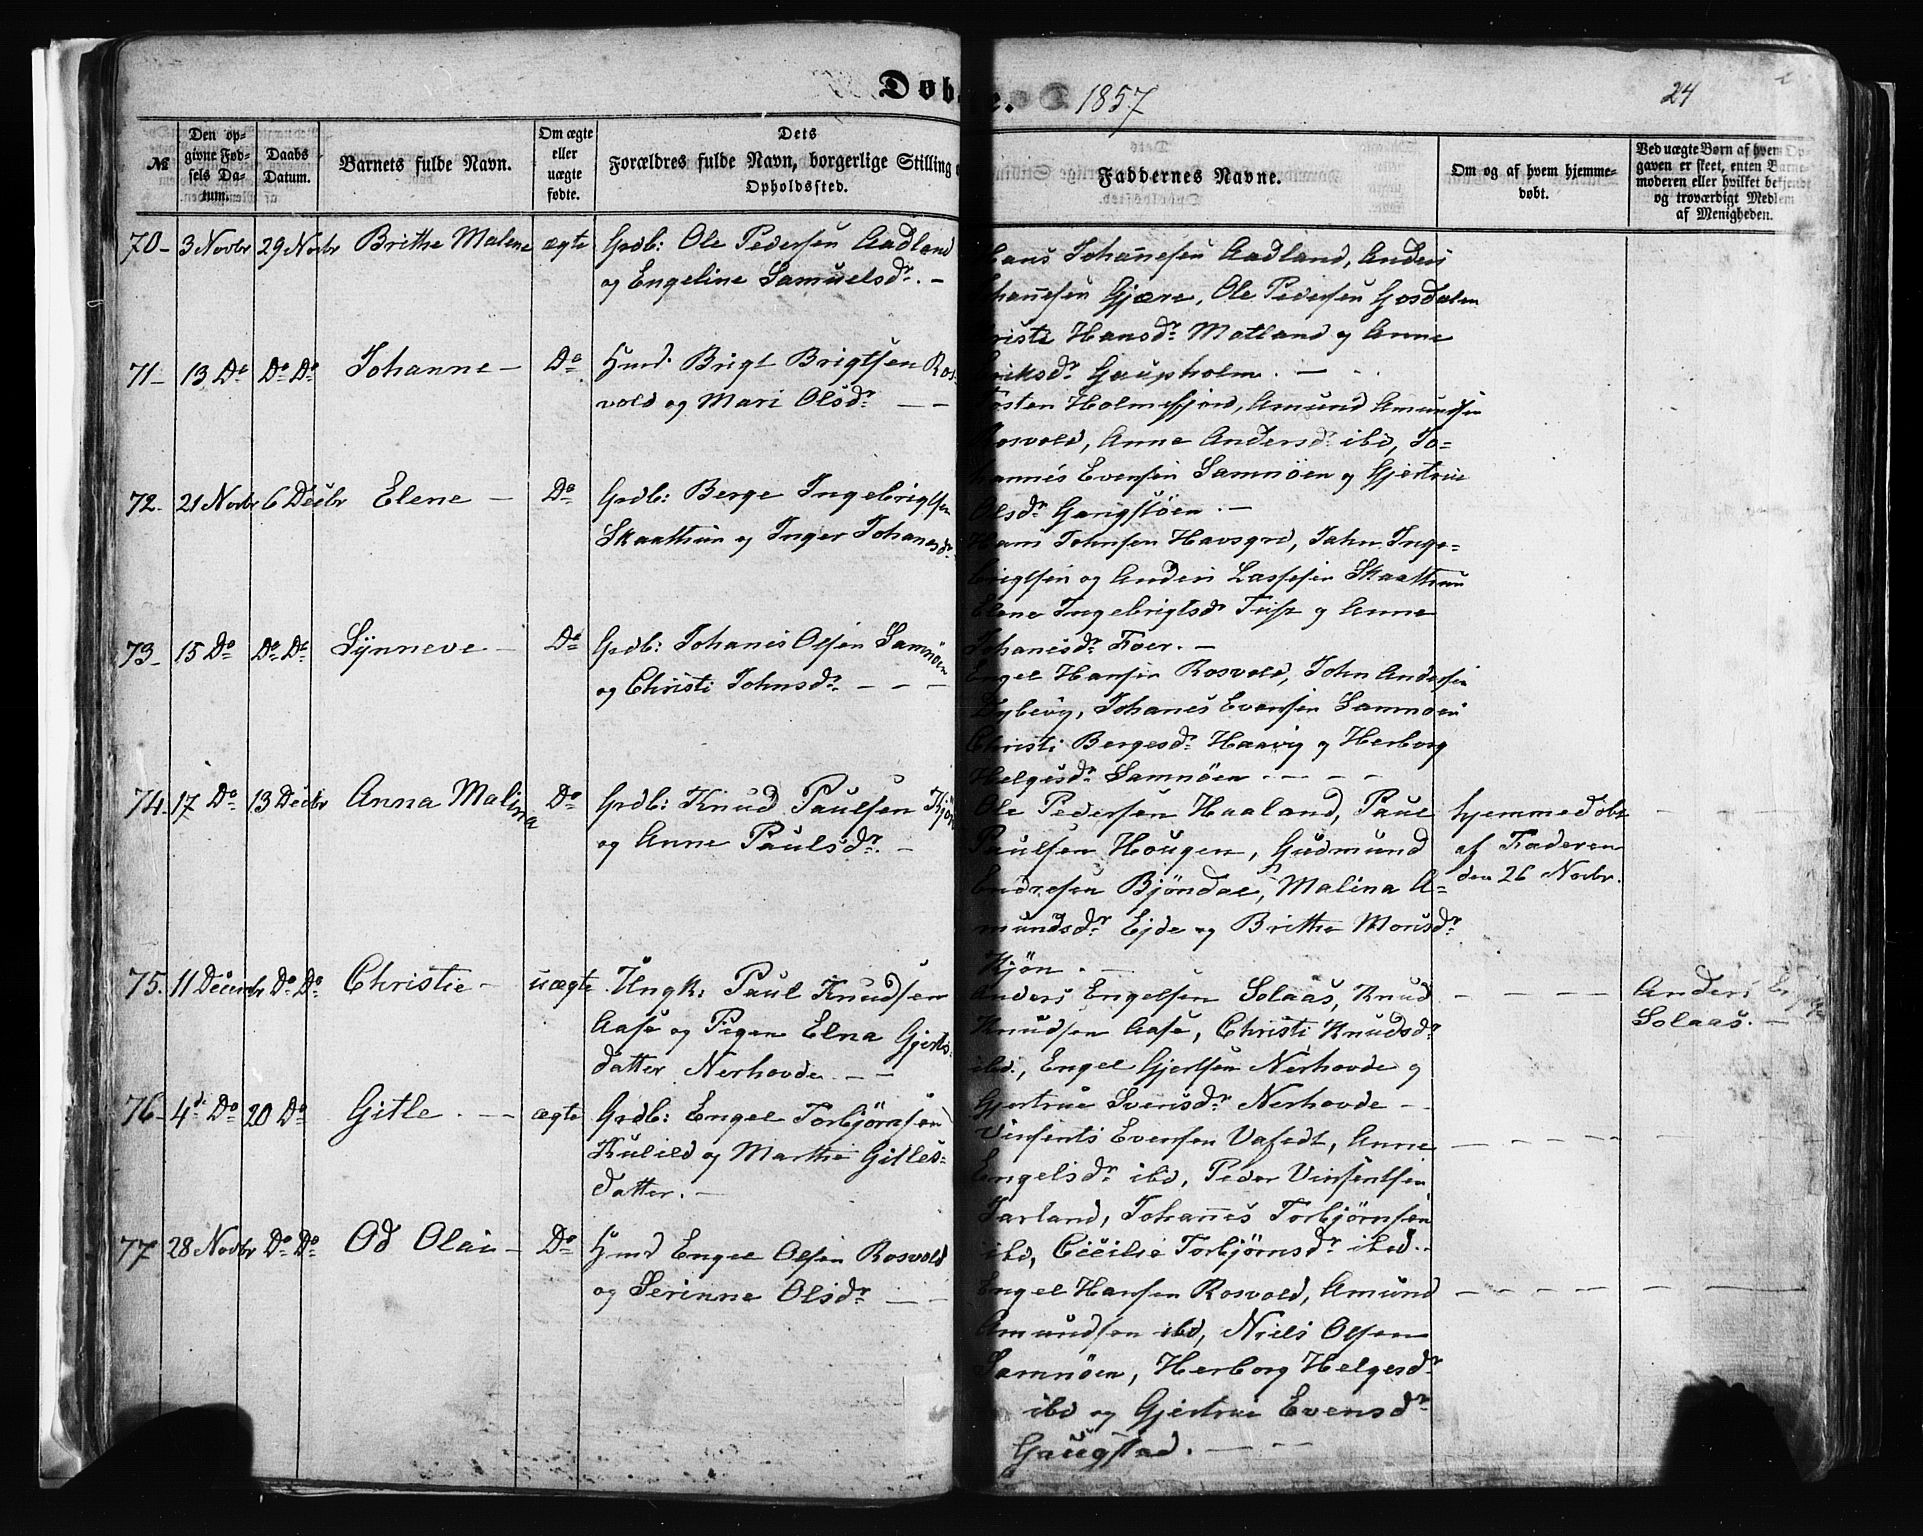 Døb
e. 1857
24
№
Den op-
givne Fød-
sels Da-
tum.
Daabs
Datum.
Barnets fulde Navn.
Om ægte
eller
uægte
fødte.
Dets
Forældres fulde Navn, borgerlige Stilling
Opholdssted.
Faddernes Navne.
Om og af hvem hjemme-
døbt.
Ved uægte Børn af hvem Op-
gaven er skeet, enten Barne-
moderen eller hvilket bekjendt
og troværdigt Medlem
af Menigheden.
70- 3 Novbr 29 Novbr Brithe Malene ægte Grdb: Ole Pedersen Aadland
og Engeline Samuelsdr. -
Hans Johannesen Aadland, Anders
Johannesen Gjære, Ole Pedersen Gosdalen
Christi Hansdr. Matland og Anne
Eriksdr. Gaupholm. -
71- 13 Do Do Do Johanne - Do Hmd. Brigt Brigtsen Ros-
vold og Mari Olsdr. - -
Tosten Holmefjord, Amund Amundsen
Rosvold, Anne Andersdr. ibd, Jo-
hannes Evensen Samnøen og Gjertrue
Olsdr. -
72. 21 Novbr 6 Decbr Elene - Do Grdb: Berge Ingebrigtsen
Skaathun og Inger Johanesdr.
Hans Johnsen Havsgrd, John Inge-
brigtsen og Anders Lassesen Skaathun
Elene Ingebrigtsdr. og Anne
Johanesdr. -
73- 15 Do Do Do Synneve - Do Grdb: Johanes Olsen Samnøen
og Christi Johnsdr. - - -
Engel Hansen Rosvold, John Andersen
Dybevig, Johanes Evensen Samnøen
Christi Bergesdr. Haavig og Herborg
Helgesdr. Samnøen. - - -
74. 17 Do 13 Decbr Anna Malina Do Grdb: Knud Paulsen Kjøn
og Anne Paulsdr. -
Ole Pedersen Haaland, Paul
Paulsen Hougen, Gudmund
Endresen Bjøndal, Malina A-
mundsdr. Ejde og Brithe Monsdr.
Kjøn. -
hjemmedøbt
af Faderen
den 26 Novbr.
75. 11 Decembr Do Do Christie - uægte Ungk: Paul Knudsen
Aase og Pigen Elna Gjerts-
datter Nerhovde. - -
Anders Engelsen Solaas, Knud
Knudsen Aase, Christi Knudsdr.
ibd., Engel Gjertsen Nerhovde og
Gjertrue Svensdr. Nerhovde - -
Anders
Solaas. -
76- 4de Do 20 Do Gitle. - ægte Grdb: Engel Torbjørnsen
Kulild og Marthe Gitles-
datter. -
Vinsents Evensen Vafedt, Anne
Engelsdr. ibd, Peder Vinsentsen
Jarland, Johannes Torbjørnsen
ibd, Cicilie Torbjørnsdr. ibd. -
77- 28 Novbr Do Do Od Olai - Do Hmd Engel Olsen Rosvold
og Serinne Olsdr. - -
Engel Hansen Rosvold, Amund
Amundsen ibd, Niels Olsen
Samnøen, Herborg Helgesdr.
ibd og Gjertrue Evensdr.
Gaugstad. - - -